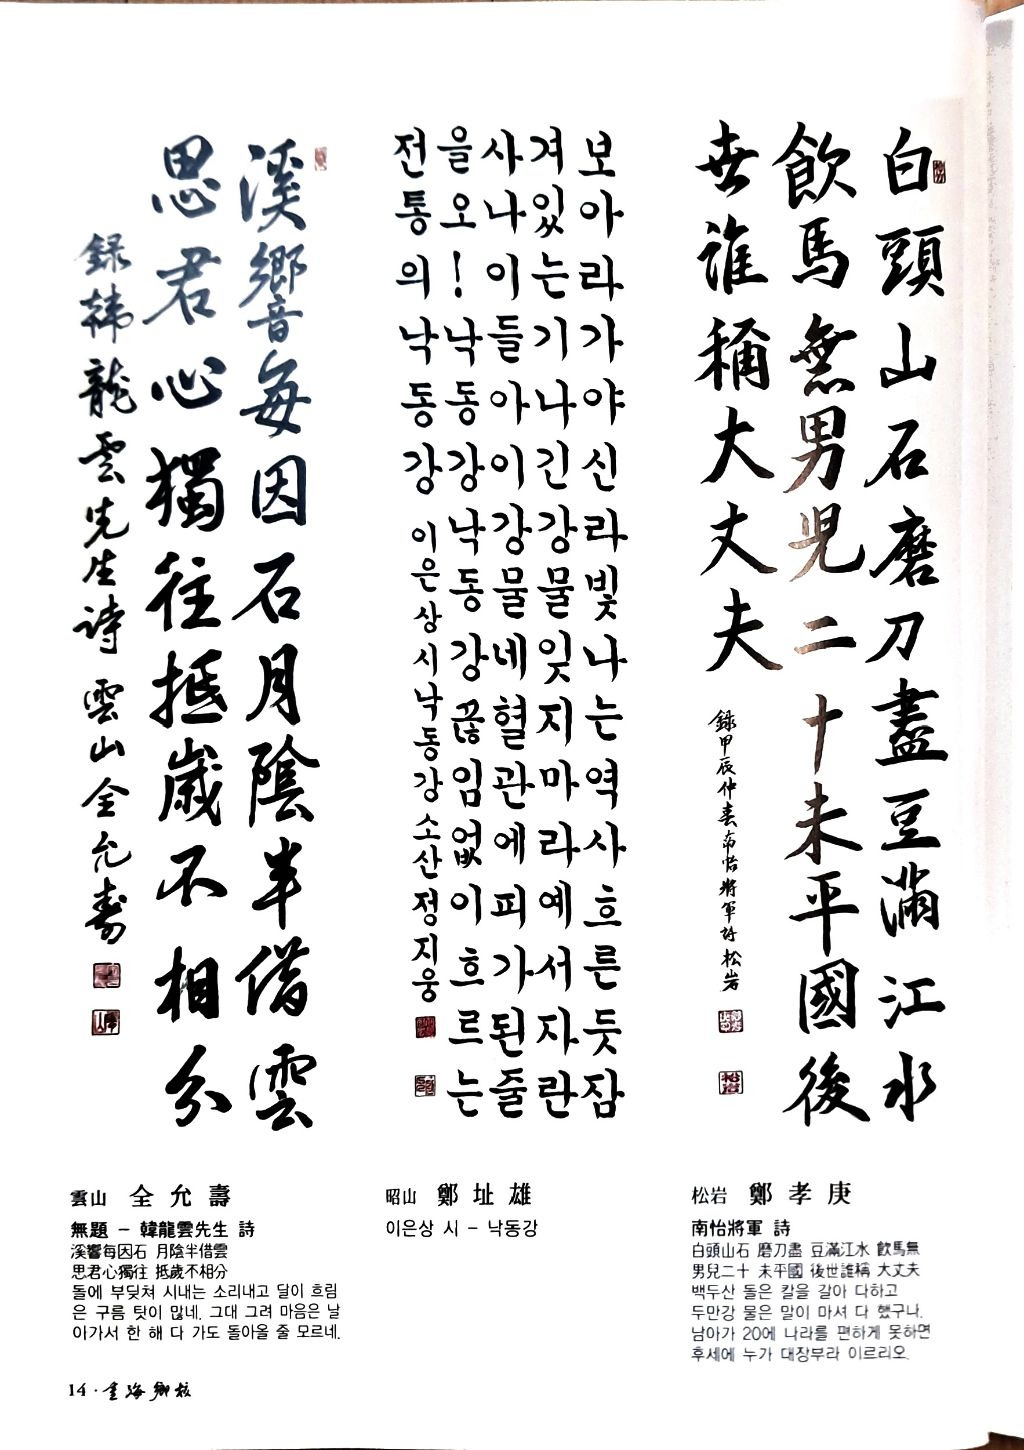 白頭山石磨刀盡豆滿江水
飮馬無男児二十未平國後
世誰稱大丈夫
錄甲辰仲春南怡將軍詩 松岩
보아라가야신라빛나는역사흐른듯잠
겨있는기나긴강물잊지마라예서자란
사나이들아이강물네혈관에피가된줄
을오!낙동강낙동강끊임없이흐르는
전통의낙동강 이은상시낙동강 소산정지웅
溪響每因石月陰半借雲
思君心獨往抵歲不相分
錄韓龍雲先生詩 雲山全允壽
雲山 全允壽
無題 - 韓龍雲先生 詩
溪響每因石 月陰半借雲
思君心獨往 抵歲不相分
돌에 부딪쳐 시내는 소리내고 달이 흐림
은 구름 탓이 많네. 그대 그려 마음은 날
아가서 한 해 다 가도 돌아올 줄 모르네.
昭山 鄭址雄
이은상 시 - 낙동강
松岩 鄭孝庚
南怡將軍 詩
白頭山石 磨刀盡 豆滿江水 飮馬無
男兒二十 未平國 後世誰稱 大丈夫
백두산 돌은 칼을 갈아 다하고
두만강 물은 말이 마셔 다 했구나.
남아가 20에 나라를 편하게 못하면
후세에 누가 대장부라 이르리오.
14 · 金海鄕校